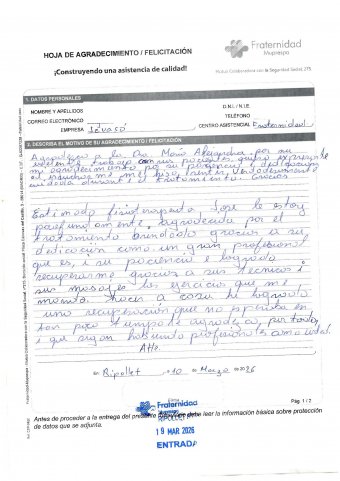 Fraternidad
Muprespa
HOJA DE AGRADECIMIENTO / FELICITACIÓN
Mutua Colaboradora con la Seguridad Social 275
¡Construyendo una asistencia de calidad!
1. DATOS PERSONALES
NOMBRE Y APELLIDOS
D.N.I. / N.I.E.
CORREO ELECTRÓNICO
TELÉFONO
EMPRESA
CENTRO ASISTENCIAL Fraternidad
2. DESCRIBA EL MOTIVO DE SU AGRADECIMIENTO / FELICITACIÓN
Agradezco a la Dra María Alejandra por su
excelente trabajo con sus pacientes, quiero expresarle
mi agradecimiento por su paciencia y dedicación
durante el tratamiento. Gracias
Estimado fisioterapeuta José le estoy
profundamente agradecida por el
tratamiento brindado gracias a su
dedicación como un gran profesional
que es, i su paciencia e logrado
recuperarme gracias a sus tecnicas i
sus masajes los ejercicios que me
mando hacer a casa he logrado
una recuperacion que no esperaba en
tan poco tiempo le agradezco, por todo,
i que sigan habiendo profesionales como usted.
Atte.
En Ripollet 10 Marzo 2026
Pág. 1 / 2
Firma
Antes de proceder a la entrega del presente debe leer la información básica sobre protección
de datos que se adjunta.
Fraternidad
Muprespa
RIPOLLET
19 MAR 2026
ENTRADA